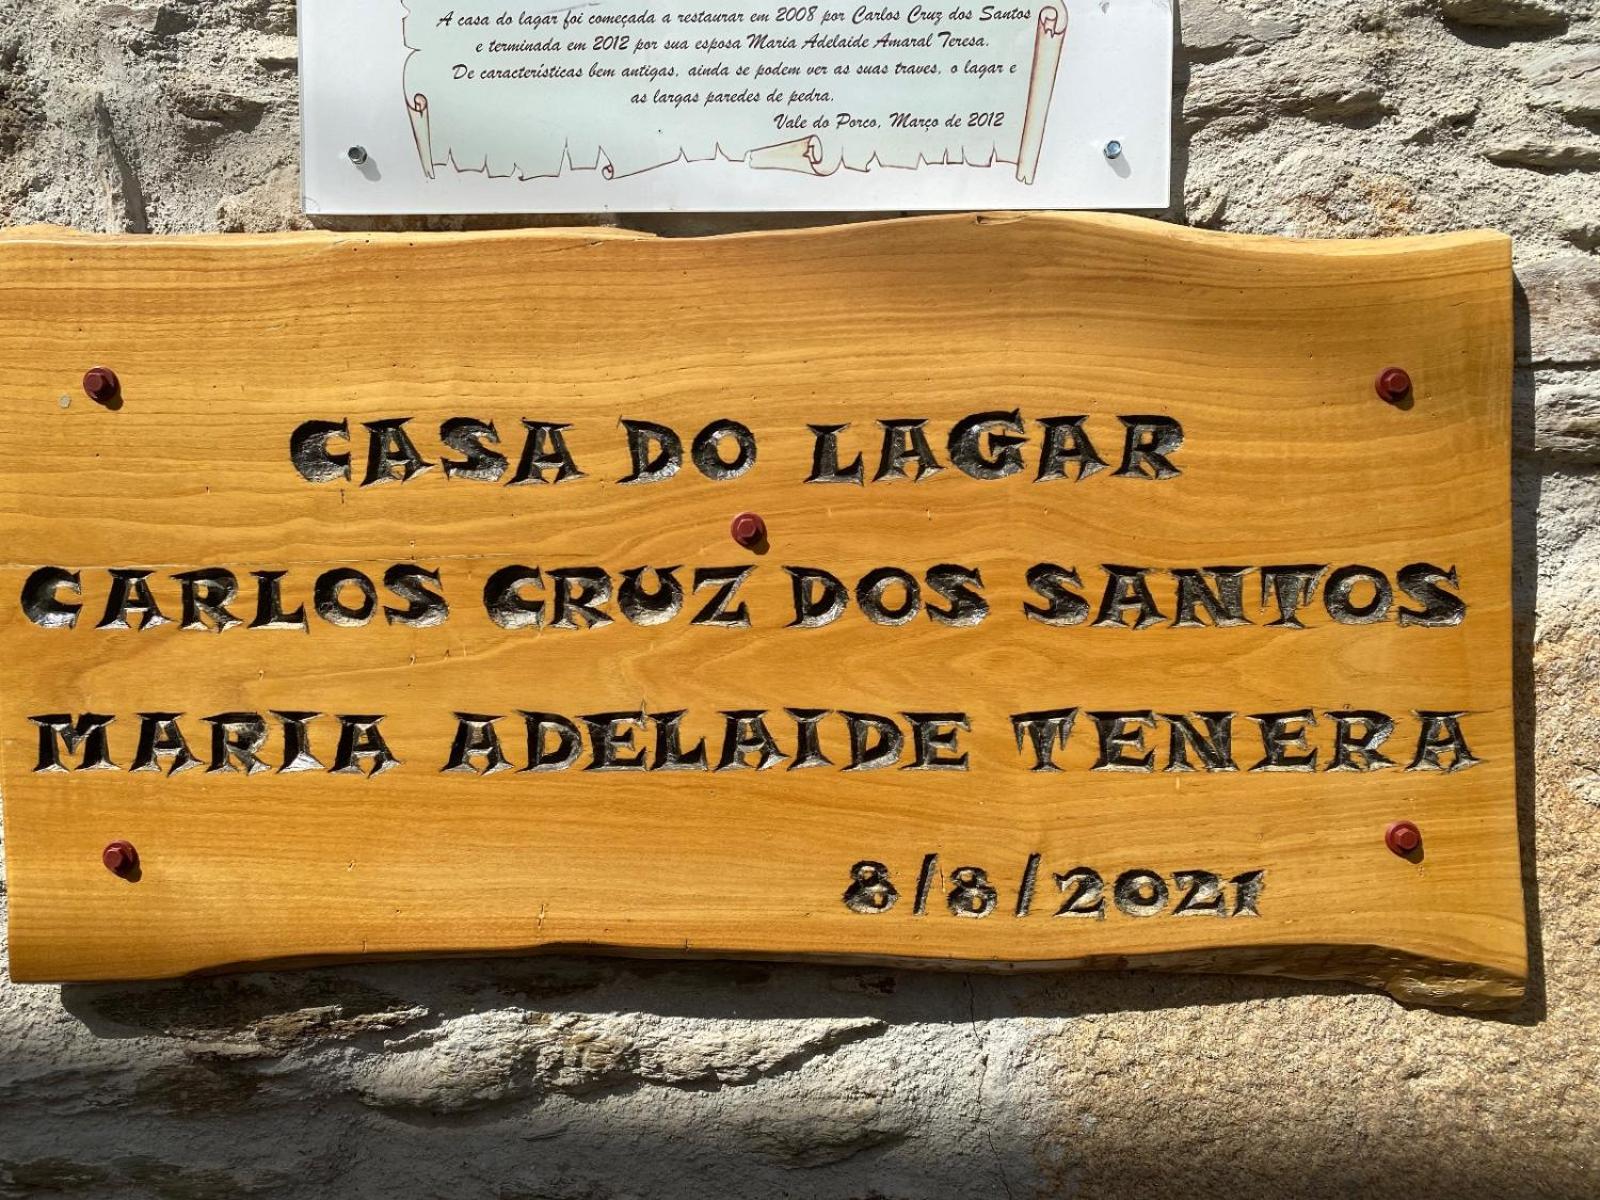 A casa do lagar foi começada a restaurar em 2008 por Carlos Cruz dos Santos
e terminada em 2012 por sua esposa Maria Adelaide Amaral Teresa.
De características bem antigas, ainda se podem ver as suas traves, o lagar e
as largas paredes de pedra.
Vale do Porco, Março de 2012
CASA DO LAGAR
CARLOS CRUZ DOS SANTOS
MARIA ADELAIDE TENERA
8/8/2021